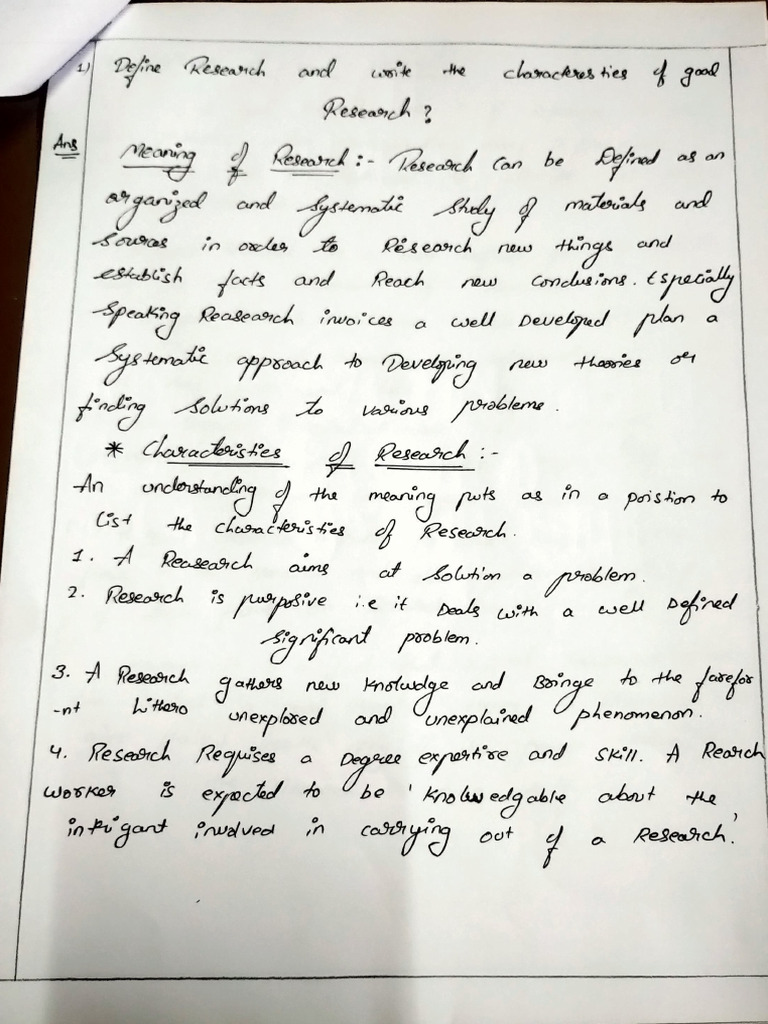 1) Define Research and write the characteresties of good
Research?
Ans
Meaning of Research :- Research Can be Defined as an
organized and Systematic Study of materials and
Sources in order to Research new things and
establish facts and Reach new Conclusions. Especially
Speaking Reasearch invoices a well Developed plan a
Systematic approach to Developing new theories or
finding Solutions to various problems.
* Characteristies of Research :-
An understanding of the meaning puts as in a poistion to
List the characteristies of Research.
1. A Reasearch aims at Solution a problem.
2. Research is purposive i.e it Deals with a well Defined
Significant problem.
3. A Research gathers new Knolwdge and Bringe to the farefor
-nt hithero unexplored and unexplained phenomenon.
4. Research Requises a Degree expertire and Skill. A Rearch
Worker is expected to be 'Knolwedgable about the
involved in carrying out of a Research.'